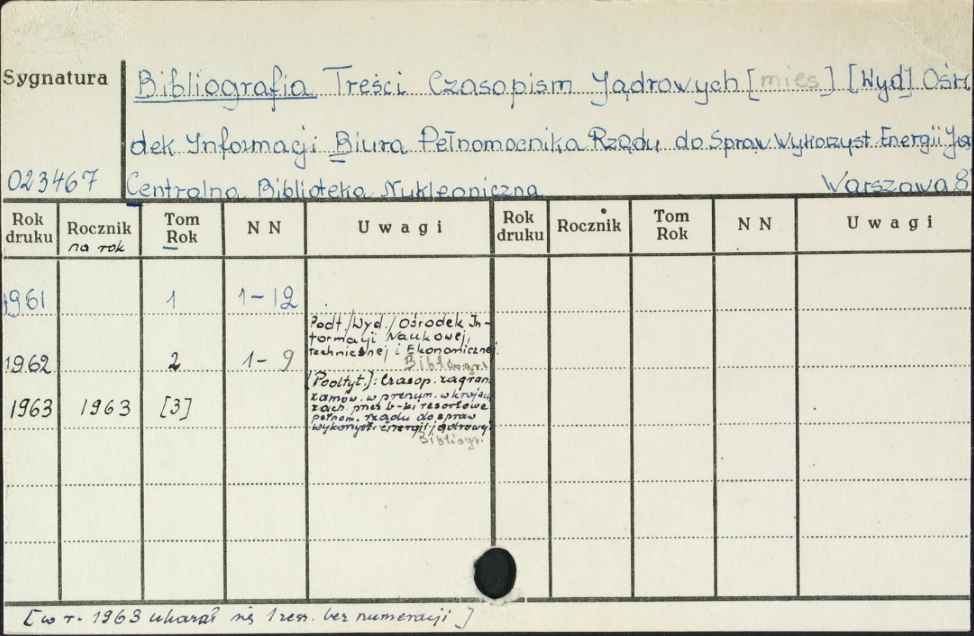 Sygnatura
Bibliografia Treści Czasopism Jądrowych [mies] [Wyd] Ośro
dek Informacji Biura Pełnomocnika Rządu do Spraw Wykorzyst. Energii Ją
023467 Centralna Biblioteka Nukleoniczna Warszawa 8
Rok druku Rocznik na rok Tom Rok NN Uwagi Rok druku Rocznik Tom Rok NN Uwagi
1961 1 1-12
Podt./Wyd./Ośrodek In-
formacji Naukowej,
Technicznej i Ekonomicznej
1962 2 1-9
Bibliogr.
[Podtyt.]: Czasop. zagran.
zamów. w prenum. w krajach
1963 1963 [3]
zach. przez b-ki resortowe
pełnom. rządu do spraw
wykorzyst. energii jądrowej.
Bibliogr.
[w r. 1963 ukazał się 1 zesz. bez numeracji]